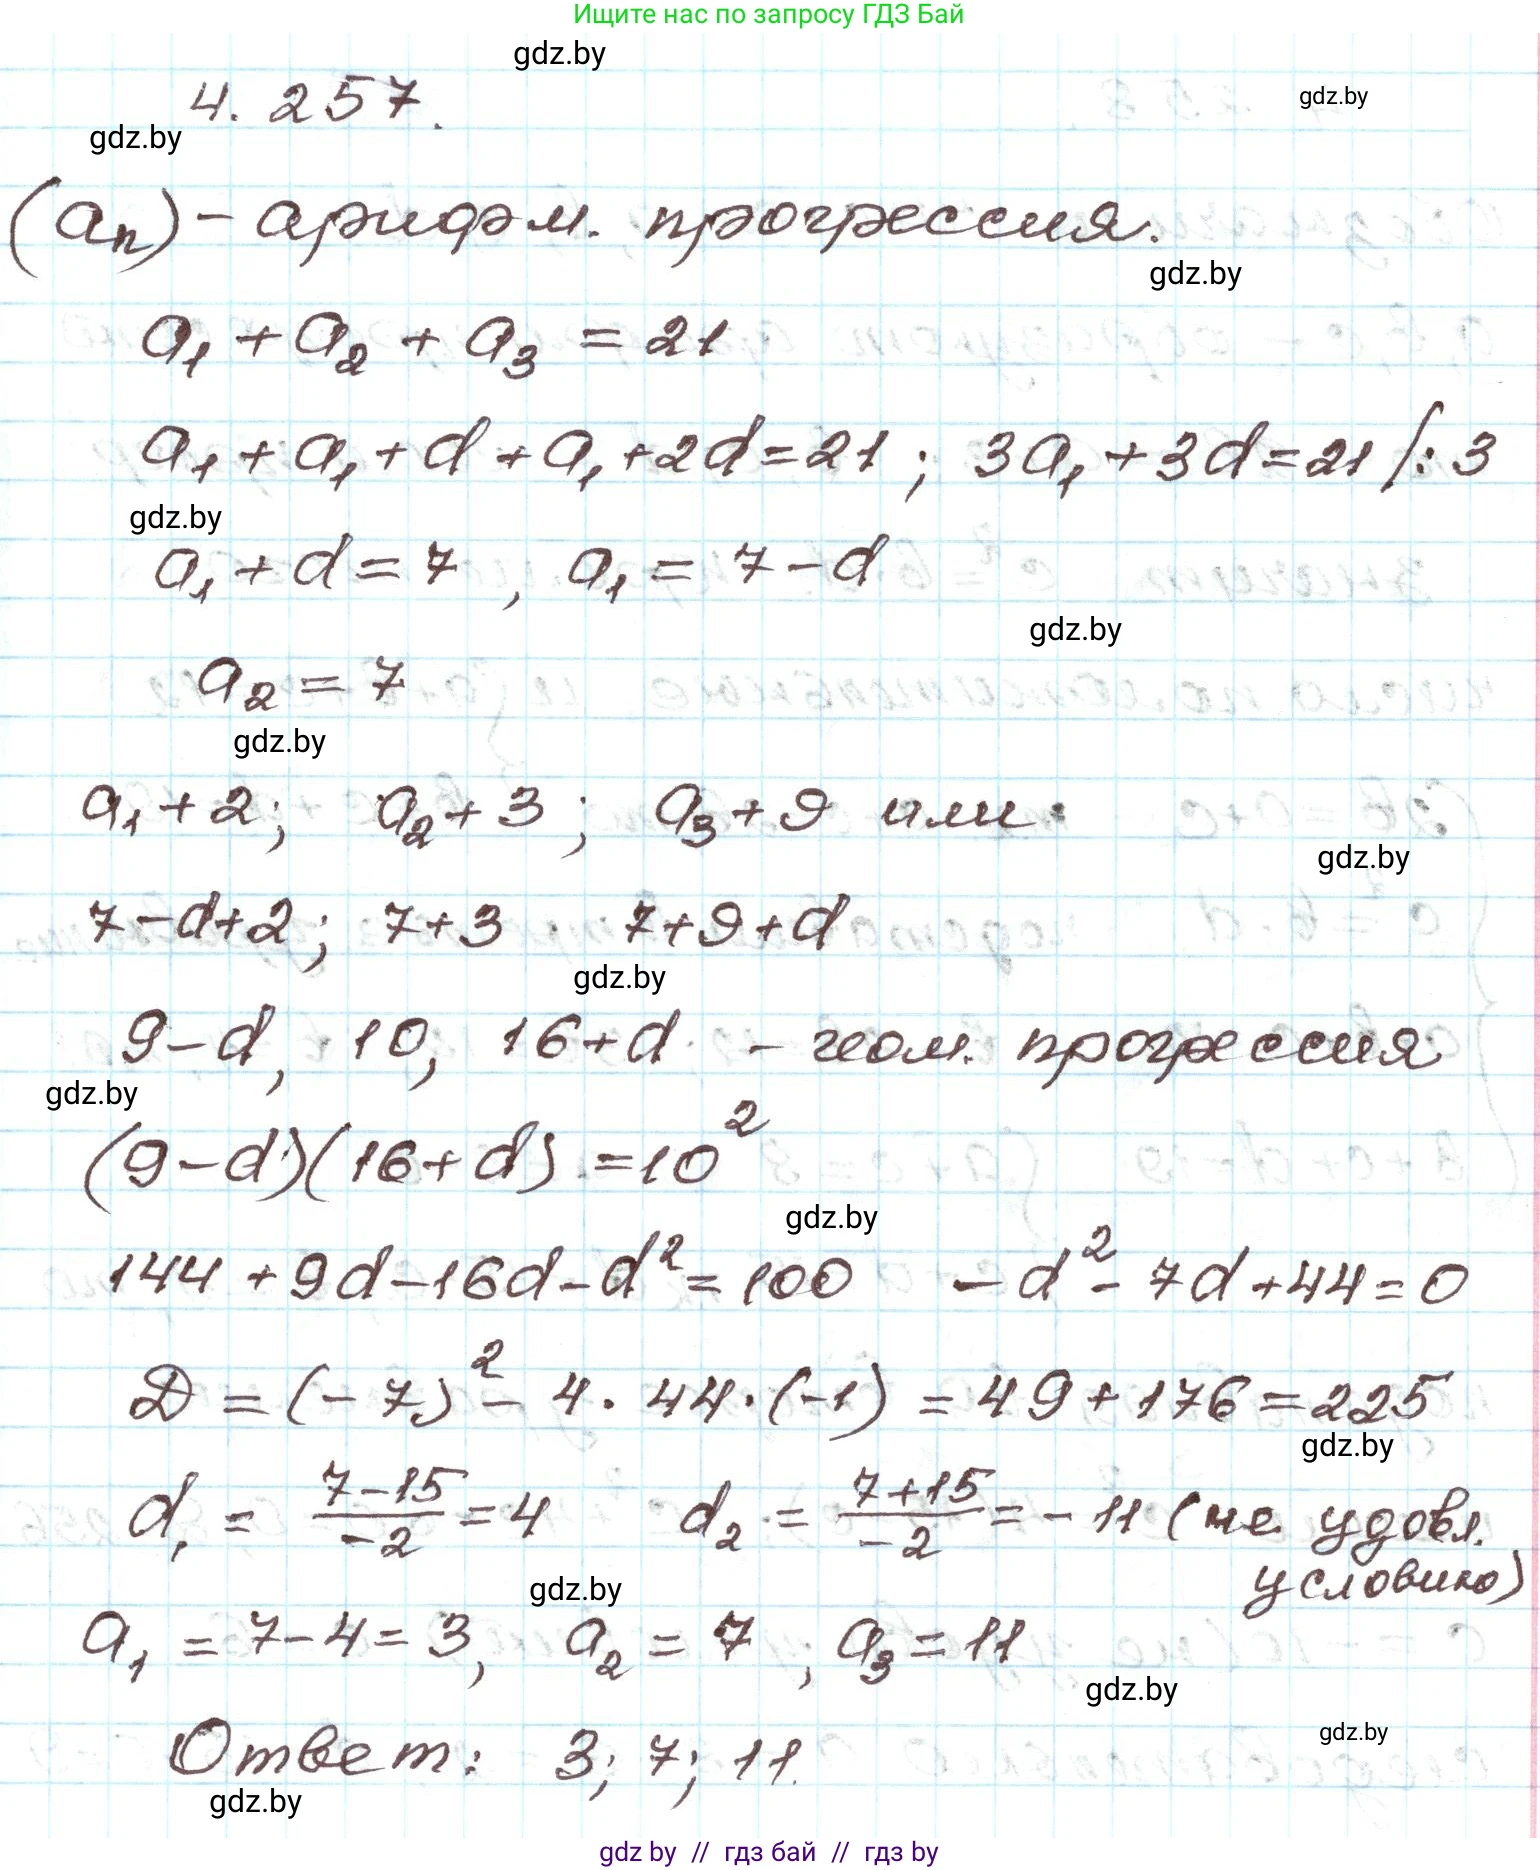 Ищите нас по запросу ГДЗ Бай
gdz.by
4.257.
gdz.by
gdz.by
(aₙ) - арифм. прогрессия.
gdz.by
a₁ + a₂ + a₃ = 21
a₁ + a₁ + d + a₁ + 2d = 21 ; 3a₁ + 3d = 21 |: 3
gdz.by
a₁ + d = 7 , a₁ = 7 - d
gdz.by
a₂ = 7
gdz.by
a₁ + 2 ; a₂ + 3 ; a₃ + 9 или:
gdz.by
7 - d + 2 ; 7 + 3 7 + 9 + d
gdz.by
9 - d , 10 , 16 + d - геом. прогрессия
gdz.by
(9 - d)(16 + d) = 10²
gdz.by
144 + 9d - 16d - d² = 100 - d² - 7d + 44 = 0
D = (-7)² - 4 · 44 · (-1) = 49 + 176 = 225
gdz.by
d₁ = (7 - 15)/(-2) = 4 d₂ = (7 + 15)/(-2) = - 11 (не удовл.
условию)
gdz.by
a₁ = 7 - 4 = 3 , a₂ = 7 , a₃ = 11
gdz.by
gdz.by
Ответ: 3; 7; 11.
gdz.by
gdz by // гдз бай // гдз by